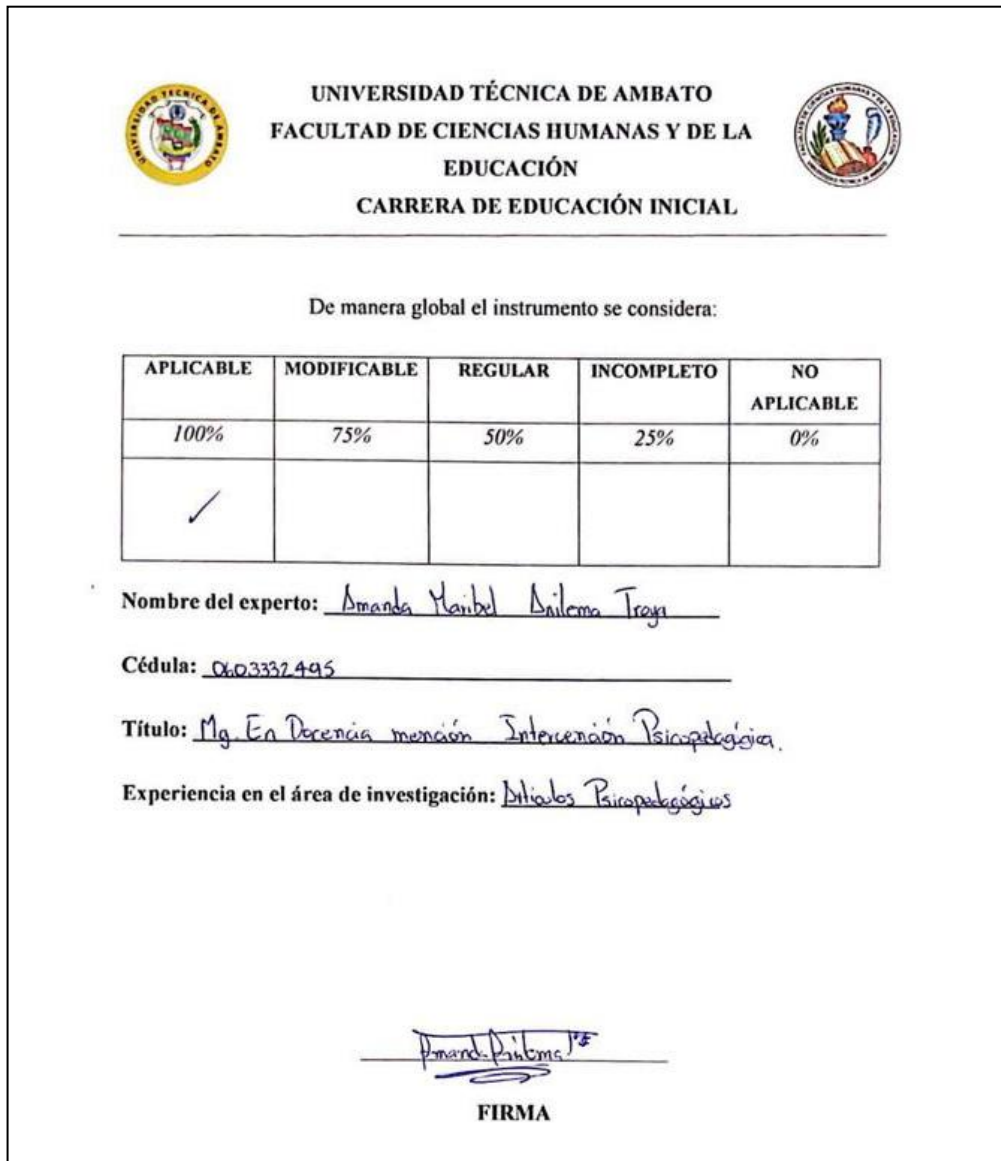 UNIVERSIDAD TÉCNICA DE AMBATO
FACULTAD DE CIENCIAS HUMANAS Y DE LA
EDUCACIÓN
CARRERA DE EDUCACIÓN INICIAL
De manera global el instrumento se considera:
APLICABLE MODIFICABLE REGULAR INCOMPLETO NO APLICABLE
100% 75% 50% 25% 0%
✓
Nombre del experto: Amanda Maribel Anilema Troya
Cédula: 0603332495
Título: Mg. En Docencia mención Intervención Psicopedagógica.
Experiencia en el área de investigación: Artículos Psicopedagógicos
FIRMA